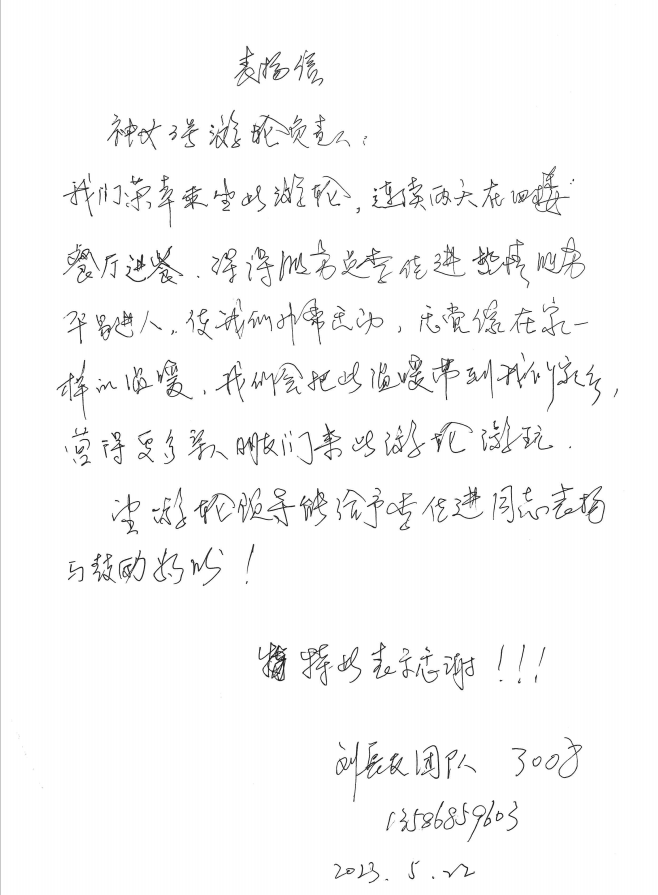 表扬信
神女3号游轮负责人：
我们荣幸乘坐此游轮，连续两天在四楼
餐厅进餐，深得服务员李佳进热情服务
平易近人，使我们非常感动，感觉像在家一
样的温暖，我们会把此温暖带到我们家乡，
赢得更多亲人朋友们来此游轮游玩.
望游轮领导能给予李佳进同志表扬
与鼓励好吗！
特此表示感谢！！！
刘长友团队 3008
13586859603
2023.5.22